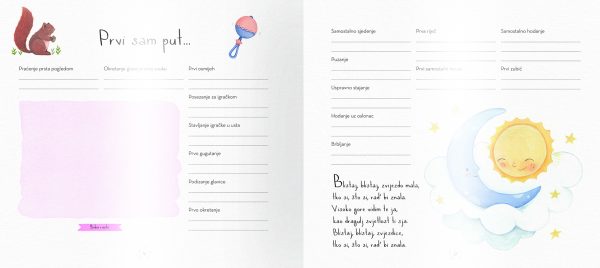 Prvi sam put...
Praćenje prsta pogledom
Okretanje glave prema
Prvi osmijeh
Posezanje za igračkom
Stavljanje igračke u usta
Prvo gugutanje
Podizanje glavice
Prvo okretanje
Samostalno sjedenje
Prva riječ
Samostalno hodanje
Puzanje
Prvi samostalni
Prvi zubić
Uspravno stajanje
Hodanje uz oslonac
Brbljanje
Blistaj, blistaj, zvijezdo mala,
tko si, što si, rad' bi znala.
Visoko gore vidim te ja,
kao dragulj svjetlost ti sja.
Blistaj, blistaj, zvjezdice,
tko si, što si, rad' bi znala.